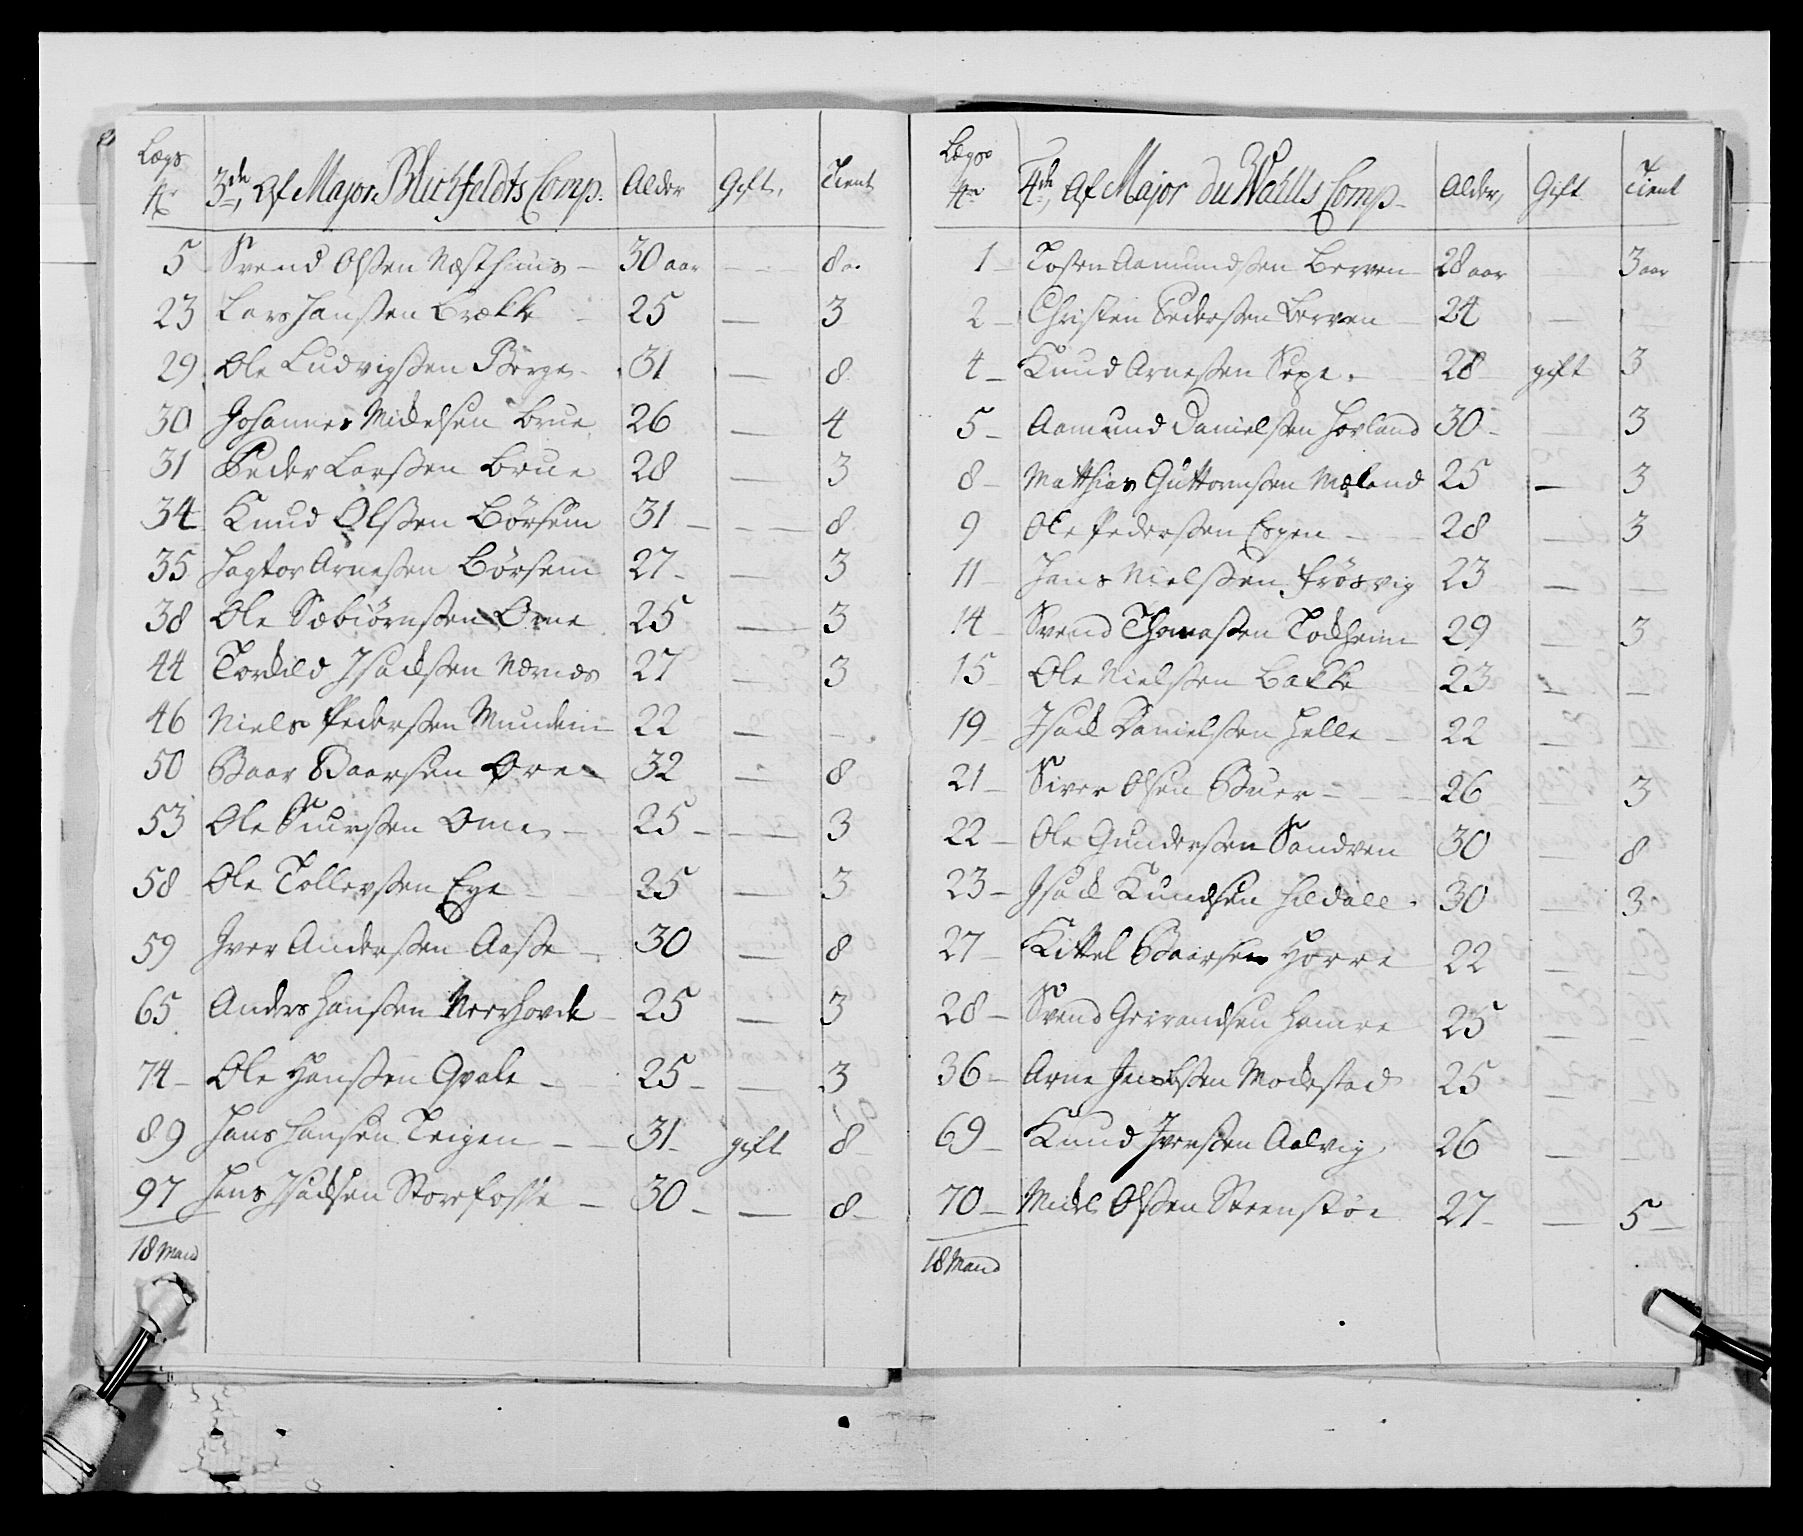 Lægs
No 3de, Af Major Blichfeldts Comp. Alder Gift. Tient
5 Svend Olsen Næsthuus 30 aar — 8 a.
23 Lars Hansen Brække 25 — 3
29 Ole Ludvigsen Børge 31 — 8
30 Johannes Michelsen Brue 26 — 4
31 Peder Larsen Brue 28 — 3
34 Knud Olsen Børsem 31 — 8
35 Hagtor Arnesen Børsem 27 — 3
38 Ole Sæbiörnsen Ome 25 — 3
44 Torkild Isacksen Nærnes 27 — 3
46 Niels Pedersen Mundem 22 — –
50 Baar Baarsen Øre 32 — 8
53 Ole Siursen Ome 25 — 3
58 Ole Tollevsen Eye 25 — 3
59 Iver Andersen Aase 30 — 8
65 Anders Hansen Neerhovde 25 — 3
74 Ole Hansen Qvale 25 — 3
89 Hans Hansen Teigen 31 gift 8
97 Hans Isacksen Storefosse 30 — 8
18 Mand
Lægs
No 4de, Af Major du Wahls Comp Alder, Gift Tient
1 Tosten Aamundsen Berven 28 aar — 3 aar
2 Christen Pedersen Berven 24 — –
4 Knud Arnesen Sexe 28 gift 3
5 Aamund Danielsen Horland 30 — 3
8 Matthias Guttormsen Mæland 25 — 3
9 Ole Pedersen Espen 28 — 3
11 Hans Nielsen Frøsvig 23 — —
14 Svend Thomasen Tockheim 29 — 3
15 Ole Nielsen Bakke 23 — —
19 Isack Danielsen Helle 22 — —
21 Siver Olsen Buer 26 — 3
22 Ole Gundersen Sandven 30 — 8
23 Isack Knudsen Hildall 30 — 3
27 Kittel Baarsen Horre 22 — —
28 Svend Geirandsen Hamre 25 — —
36 Arne Jacobsen Mockestad 25 — —
69 Knud Iversen Aalvig 26 — —
70 Michel Olsen Steenstöe 27 — 5
18 Mand